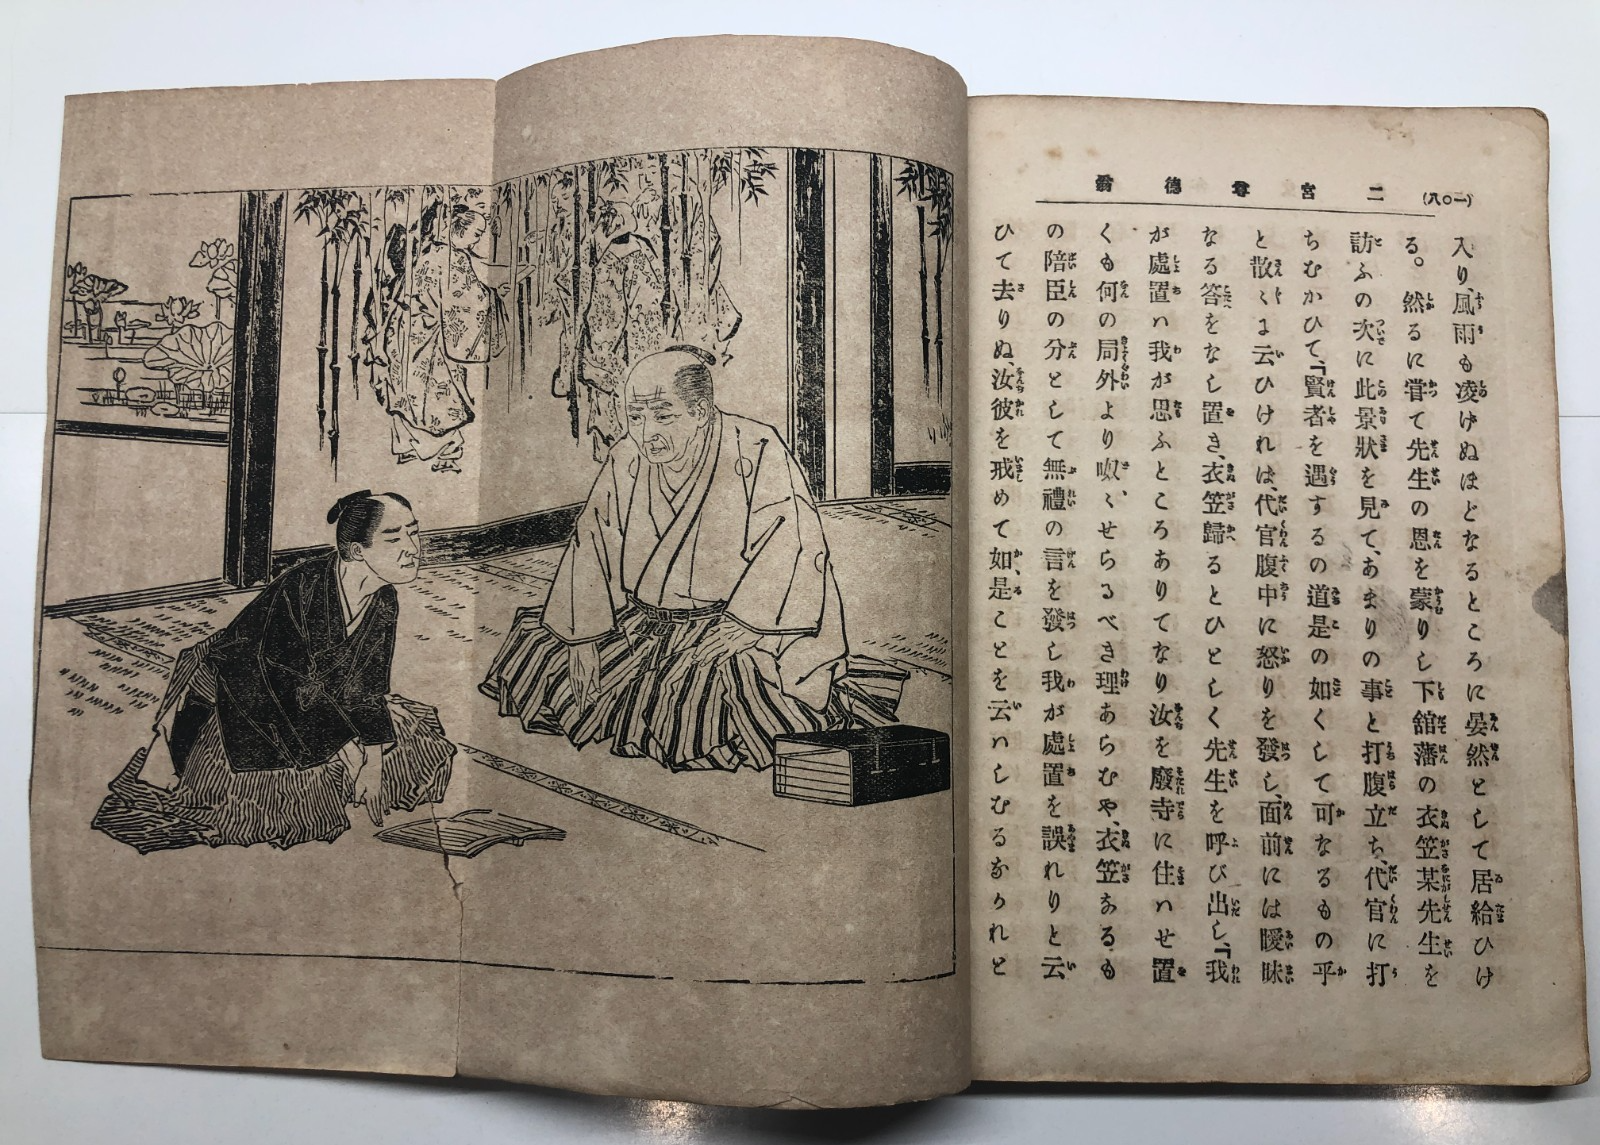 二宮尊徳翁
(一〇八)
入り、風雨も凌げぬほどなるところに晏然として居給ひけ
る。然るに甞て先生の恩を蒙りし下舘藩の衣笠某先生を
訪ふの次に此景狀を見て、あまりの事と打腹立ち、代官に打
ちむかひて、「賢者を遇するの道是の如くして可なるもの乎
と散〻に云ひけれは、代官腹中に怒りを發し、面前には曖昧
なる答をなし置き、衣笠歸るとひとしく先生を呼び出し、「我
が處置ハ我が思ふところありてなり汝を廢寺に住ハせ置
くも何の局外より呶〻せらるべき理あらむや、衣笠なるも
の陪臣の分として無禮の言を發し我が處置を誤れりと云
ひて去りぬ、汝彼を戒めて如是ことを云ハしむるなかれと